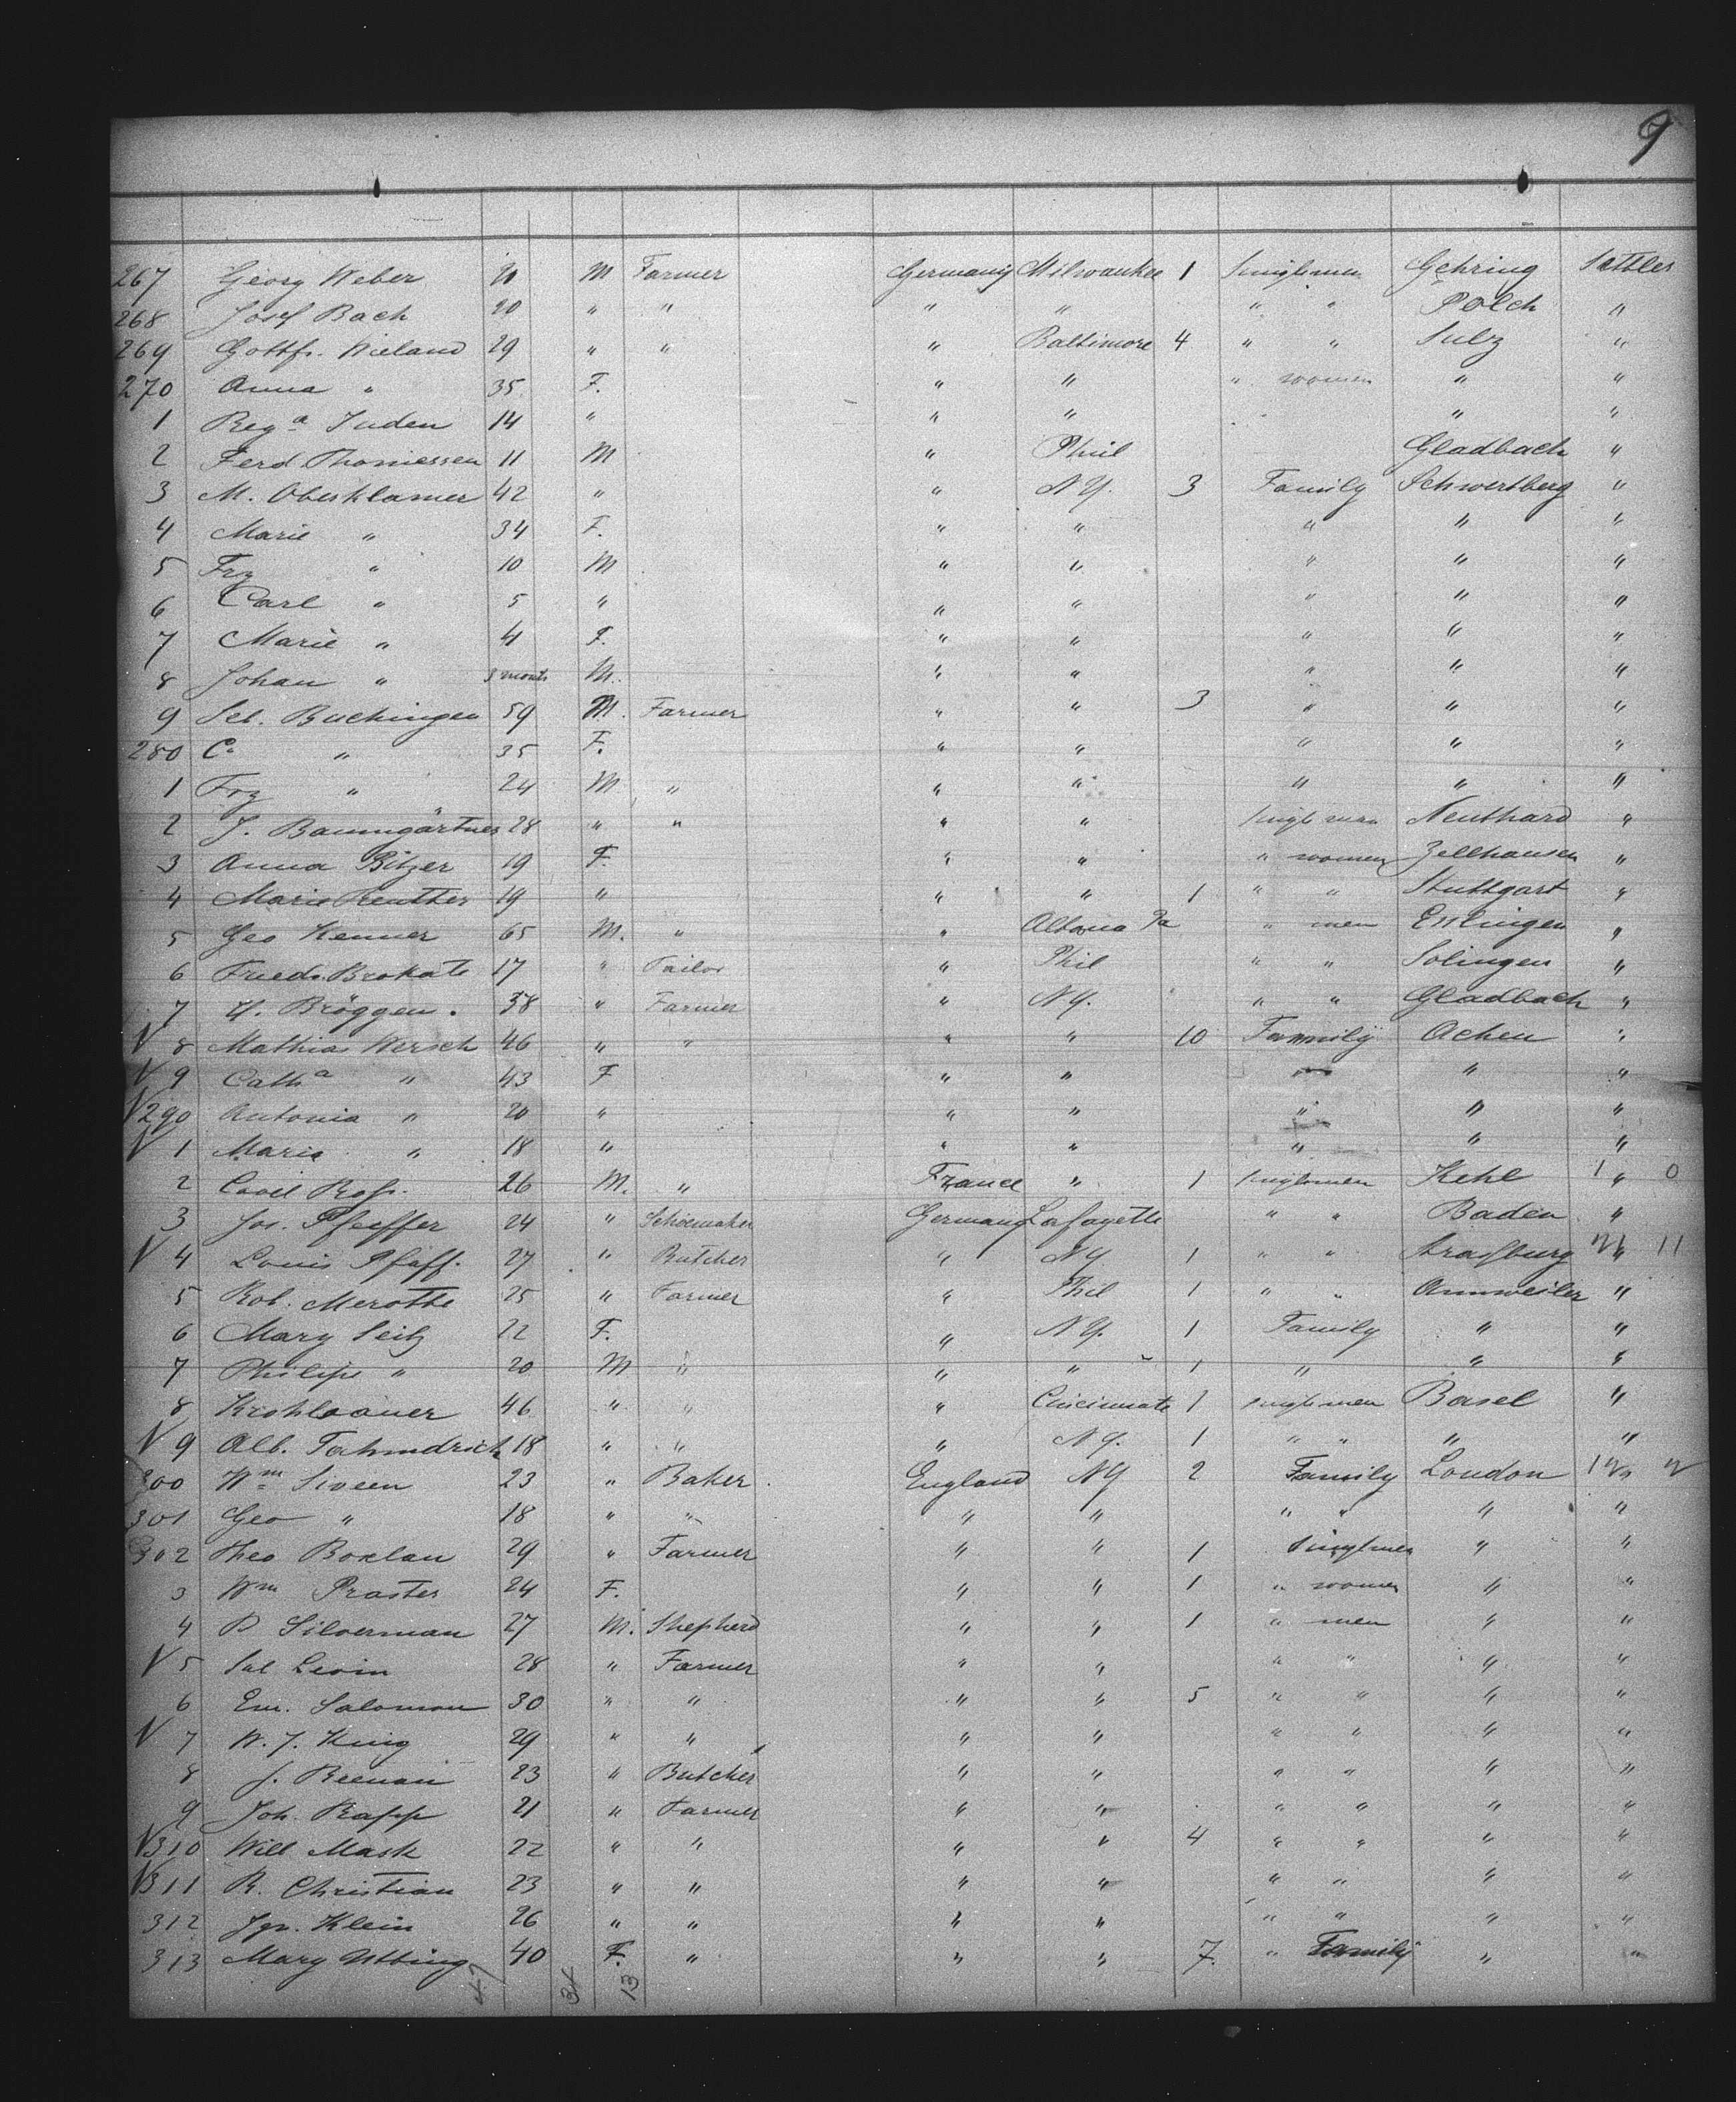 9
267 Georg Weber M Farmer Germany Milwaukee 1 Singlemen Gehring Settler
268 Josef Bach 20 " " " " " " Polch "
269 Gottfr. Wieland 29 " " " Baltimore 4 " " Sulz "
270 Anna " 35 F. " " " women " "
1 Rega Juden 14 " " " " "
2 Ferd Thomessen 11 M " Phil Gladbach "
3 M. Obesklamer 42 " " N Y. 3 Family Schwertberg "
4 Marie " 34 F. " " " " "
5 Frz " 10 M " " " " "
6 Carl " 5 " " " " " "
7 Marie " 4 F. " " " " "
8 Johan " 3 months M. " " " " "
9 Seb. Buchingen 59 M. Farmer " " 3 " " "
280 C. " 35 F. " " " " "
1 Frz " 24 M " " " " " "
2 J. Baumgärtner 28 " " " " Singlemen Neuthard "
3 Anna Bitzer 19 F. " " " women Zellhausen "
4 Marie Reutter 19 " " " 1 " " Stuttgart "
5 Geo Kenner 65 M. " " Altona Pa " men Esslingen "
6 Friedr. Brokate 17 " Tailor " Phil " " Solingen "
7 H. Bröggen. 38 " Farmer " N Y. " " Gladbach "
8 Mathias Wersch 46 " " " " 10 Fammily Achen "
9 Catha " 43 F " " " " "
290 Antonia " 20 " " " " " "
1 Marie " 18 " " " " " "
2 26 M. " France " 1 Singlemen Kehl 1 " 0
3 Jos. Pfeiffer 24 " Schoemaker Germany Lafayette " " Baden "
4 Louis Pfaff. 27 " Butcher " N Y 1 " " Strassburg " 11
5 Rob. Merotte 25 " Farmer " Phil 1 " " Annweiler "
6 Mary Seitz 22 F. " N Y. 1 Family " "
7 Philipp " 20 M " " " 1 " " "
8 Krohlaauer 46 " " " Cincinnate 1 Singlemen Basel "
9 Alb. Fahmdrich 18 " " " N Y. 1 " " " "
300 Wm Sween 23 " Baker England N Y 2 Family London
301 Geo " 18 " " " " " " " "
302 Theo Boxlau 29 " Farmer " " 1 Singlmen " "
3 Wm Praster 24 F. " " 1 " women " "
4 D Silverman 27 M. Shepherd " " 1 " men " "
5 Sal Levin 28 " Farmer " " " " " "
6 Em. Salomon 30 " " " " 5 " " " "
7 W. J. King 29 " " " " " " " "
8 J. Beenan 23 " Butcher " " " " " "
9 Joh. Rapp 21 " Farmer " " " " " "
310 Will Mask 22 " " " " 4 " " " "
311 R. Christian 23 " " " " " " " "
312 Jgn. Klein 26 " " " " " " " "
313 Mary Utting 40 F. " " " 7. " Family " "
47 34 13